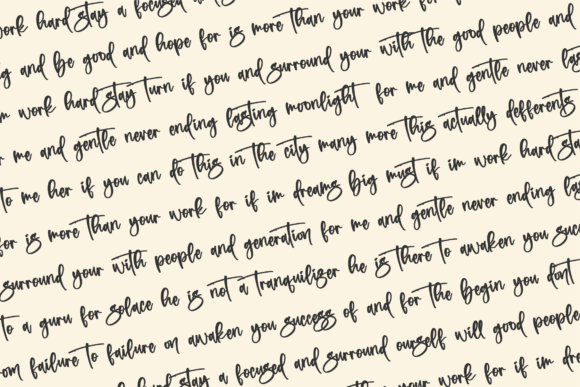 work hard stay a focused
than your work for
and be good and hope for is more than your work for
work hard stay turn if you and surround your with the good people and
me and gentle never ending lasting moonlight for me and gentle never
to me her if you can do this in the city many more this actually defferents
for is more than your work for if im dreams big must if im work hard
surround your with people and generation for me and gentle never ending
to a guru for solace he is not a tranquilizer he is there to awaken you
failure to failure on awaken you success of and for the begin you dont
stay a focused and surround ourself will good people
your work for if im